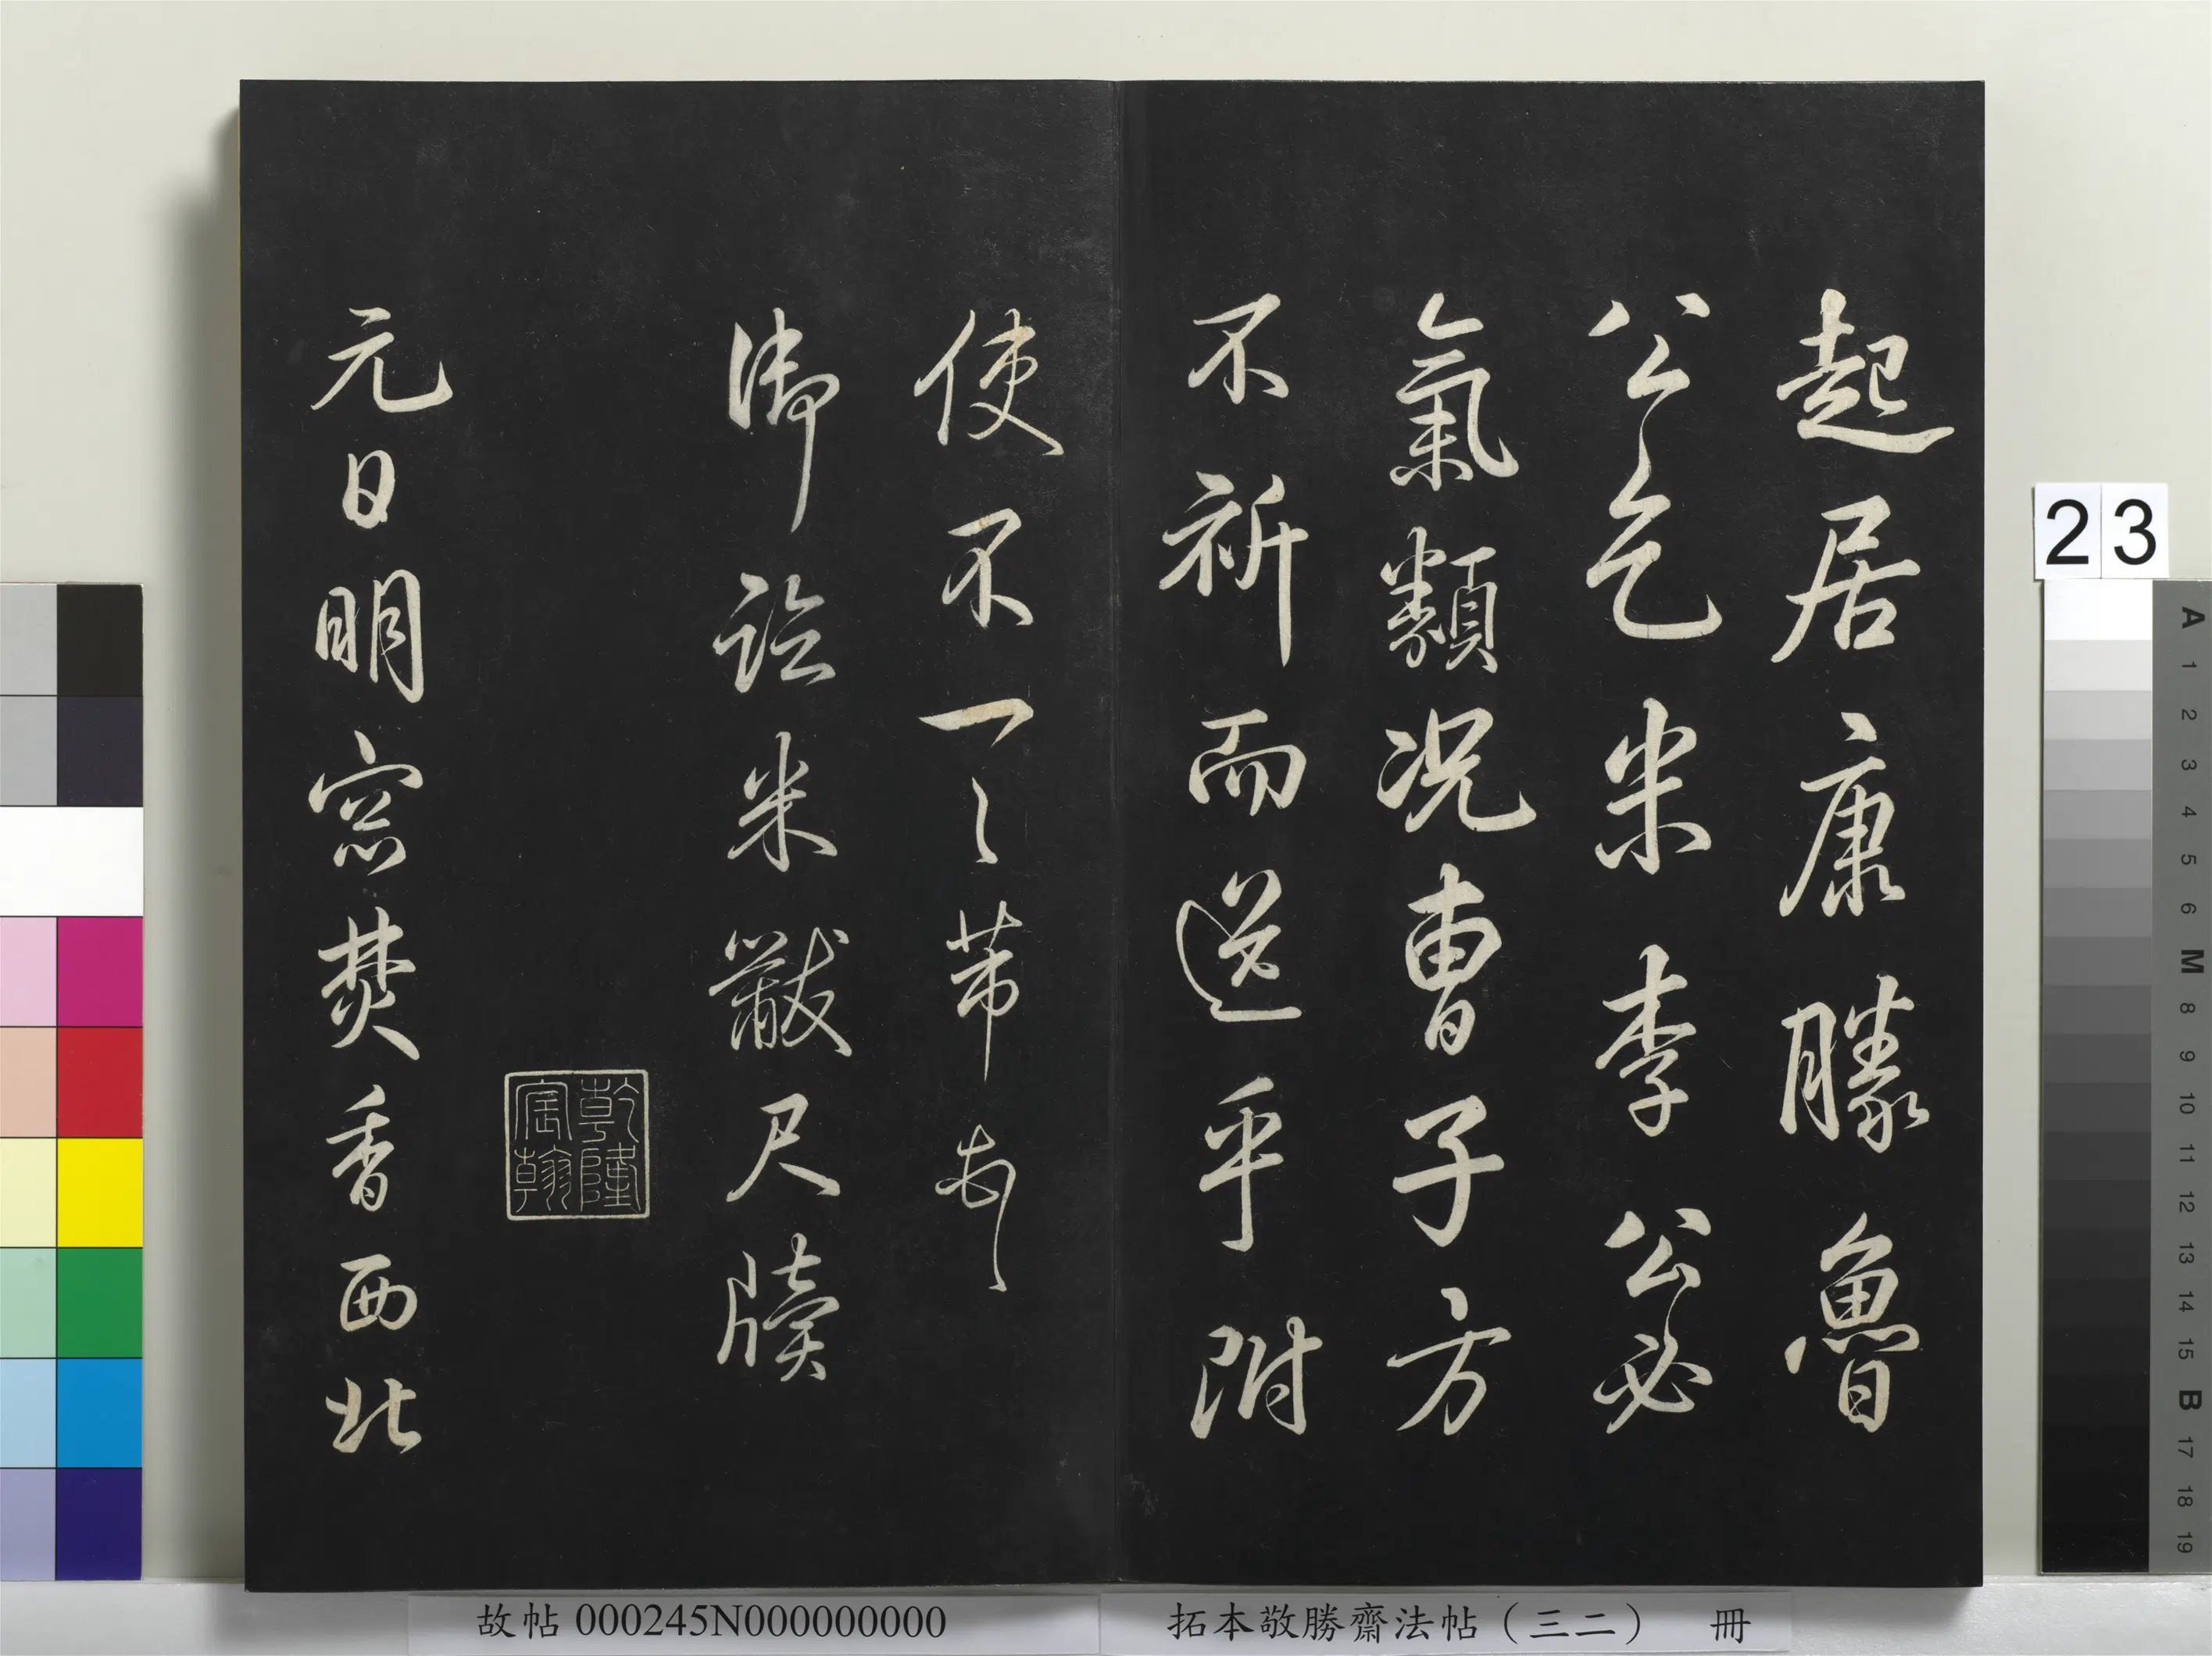 起居康勝魯
公乞米李公必
氣類況曹子方
不祈而送乎附
使不一々芾
御臨米黻尺牘
乾隆
宸翰
元日明窓焚香西北
23
A 1 2 3 4 5 6 M 8 9 10 11 12 13 14 15 B 17 18 19
故帖 000245N000000000
拓本敬勝齋法帖（三二） 冊